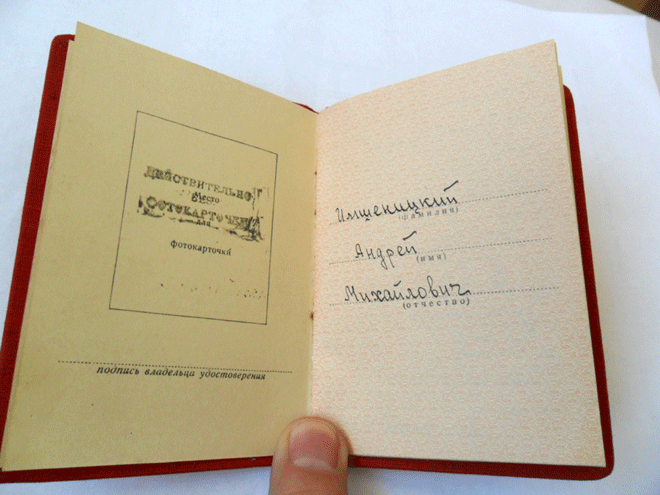 ДЕЙСТВИТЕЛЬНО
Место
ФОТОКАРТОЧКИ
для
фотокарточки
подпись владельца удостоверения
Имшеницкий
(фамилия)
Андрей
(имя)
Михайлович
(отчество)